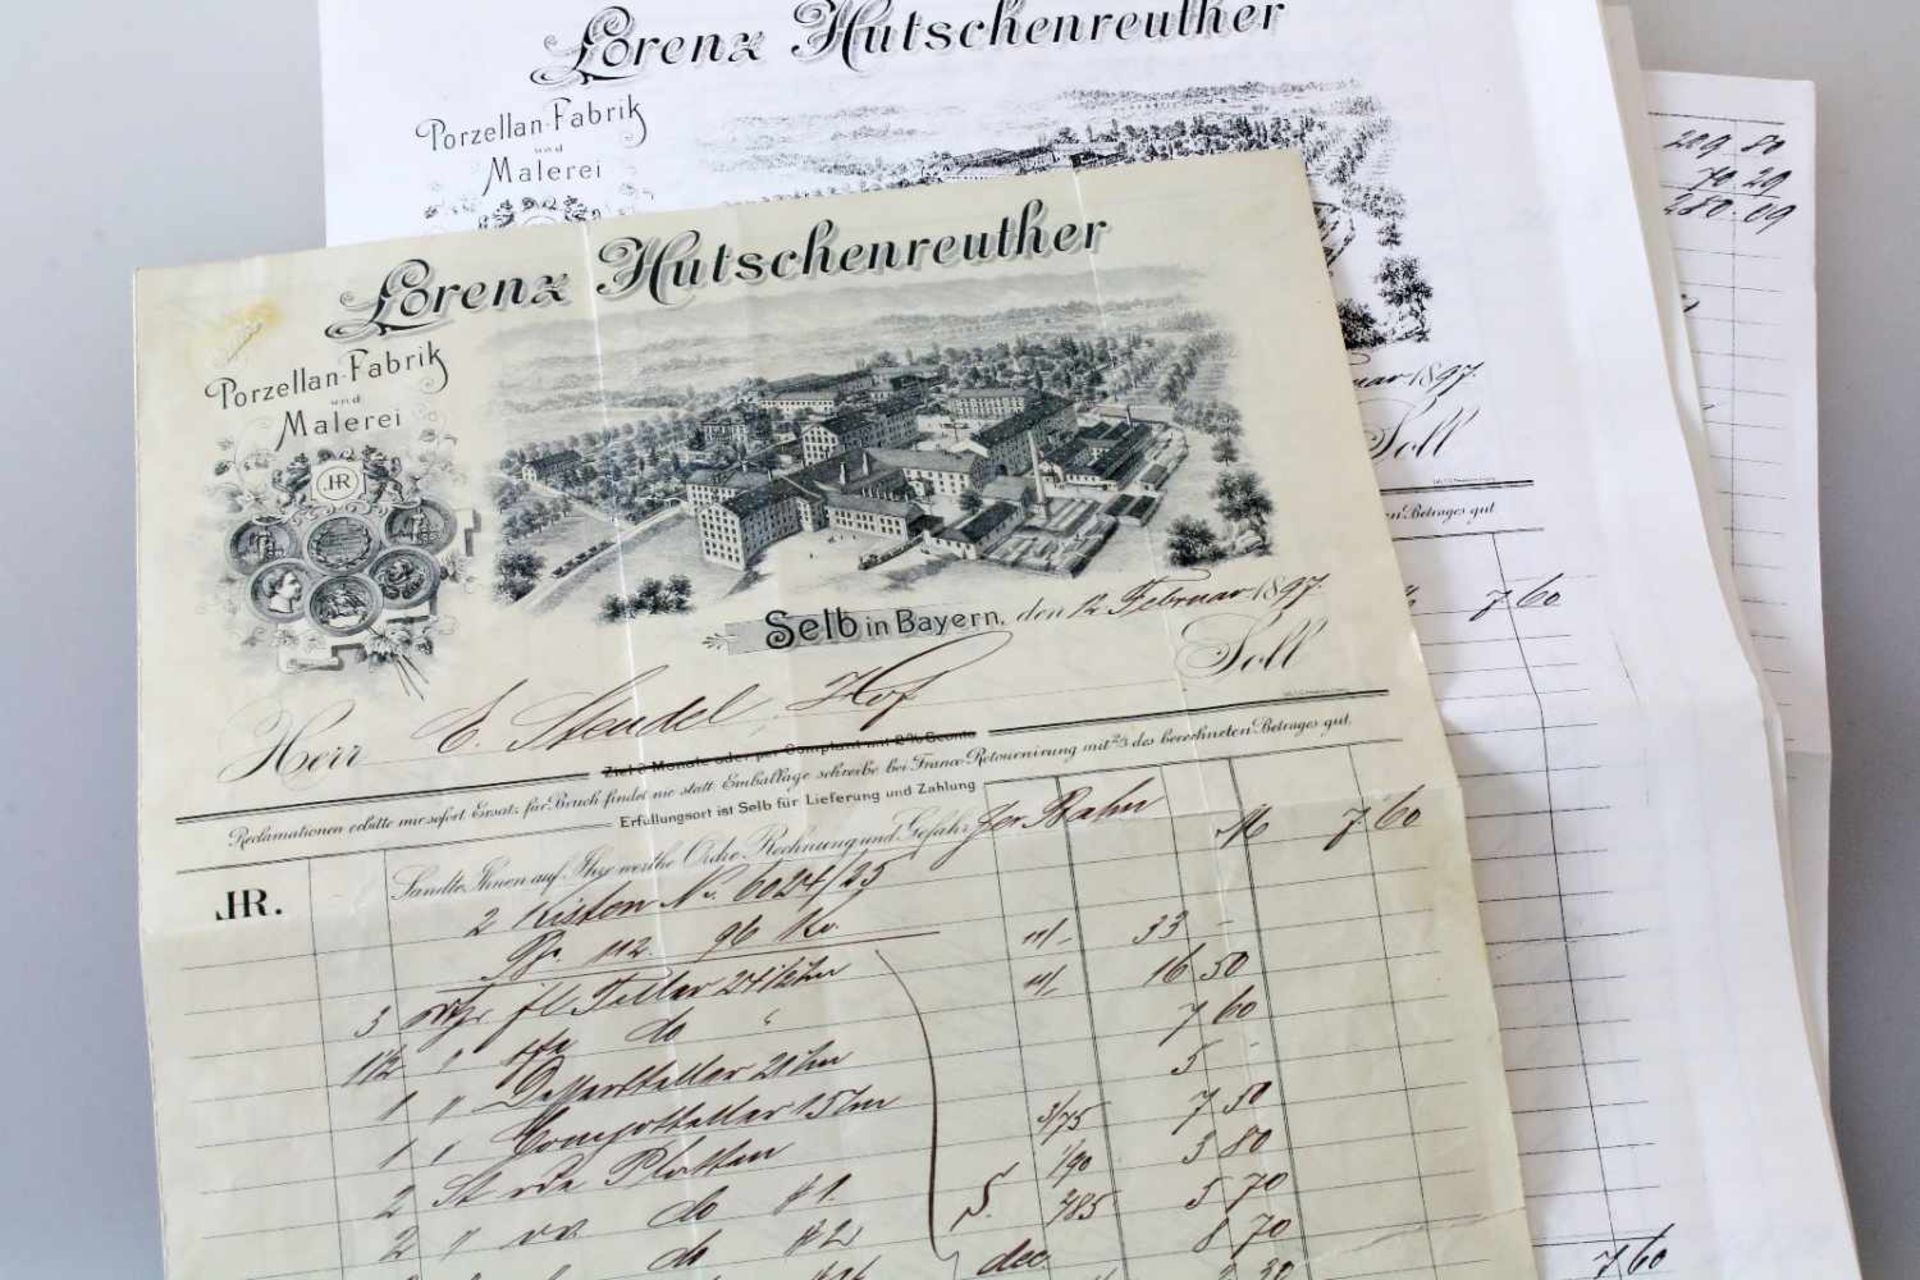 Lorenz Hutschenreuther
Porzellan-Fabrik
und
Malerei
229 80
70.29
280.09
Lorenz Hutschenreuther
Porzellan-Fabrik
und
Malerei
JHR
Selb in Bayern, den 12. Februar 1897.
Soll
Herr E. Steudel, Hof
Ziel 3 Monate oder per Comptant mit 2% Sconto
Reclamationen erbitte mir sofort Ersatz für Bruch findet nie statt Emballage schreibe bei Franco-Retournirung mit 2/3 des berechneten Betrages gut.
Erfüllungsort ist Selb für Lieferung und Zahlung
JHR. Sandte Ihnen auf Ihre werthe Ordre, Rechnung und Gefahr per Bahn M 7 60
2 Kisten No. 6024/25
Br. 112. 96 Ko.
3 fl Teller 24 1/2 33 -
1 1/2 " do " 16 50
1 " Dessertteller 21 7 60
1 " Compotteller 15 5 -
2 St Platten 3/75 7 50
2 " do # 1. 1/90 3 80
do # 2 285 5 70
dec 8 70
2 30
uar 1897.
Soll
Betrages gut
7 60
7 60